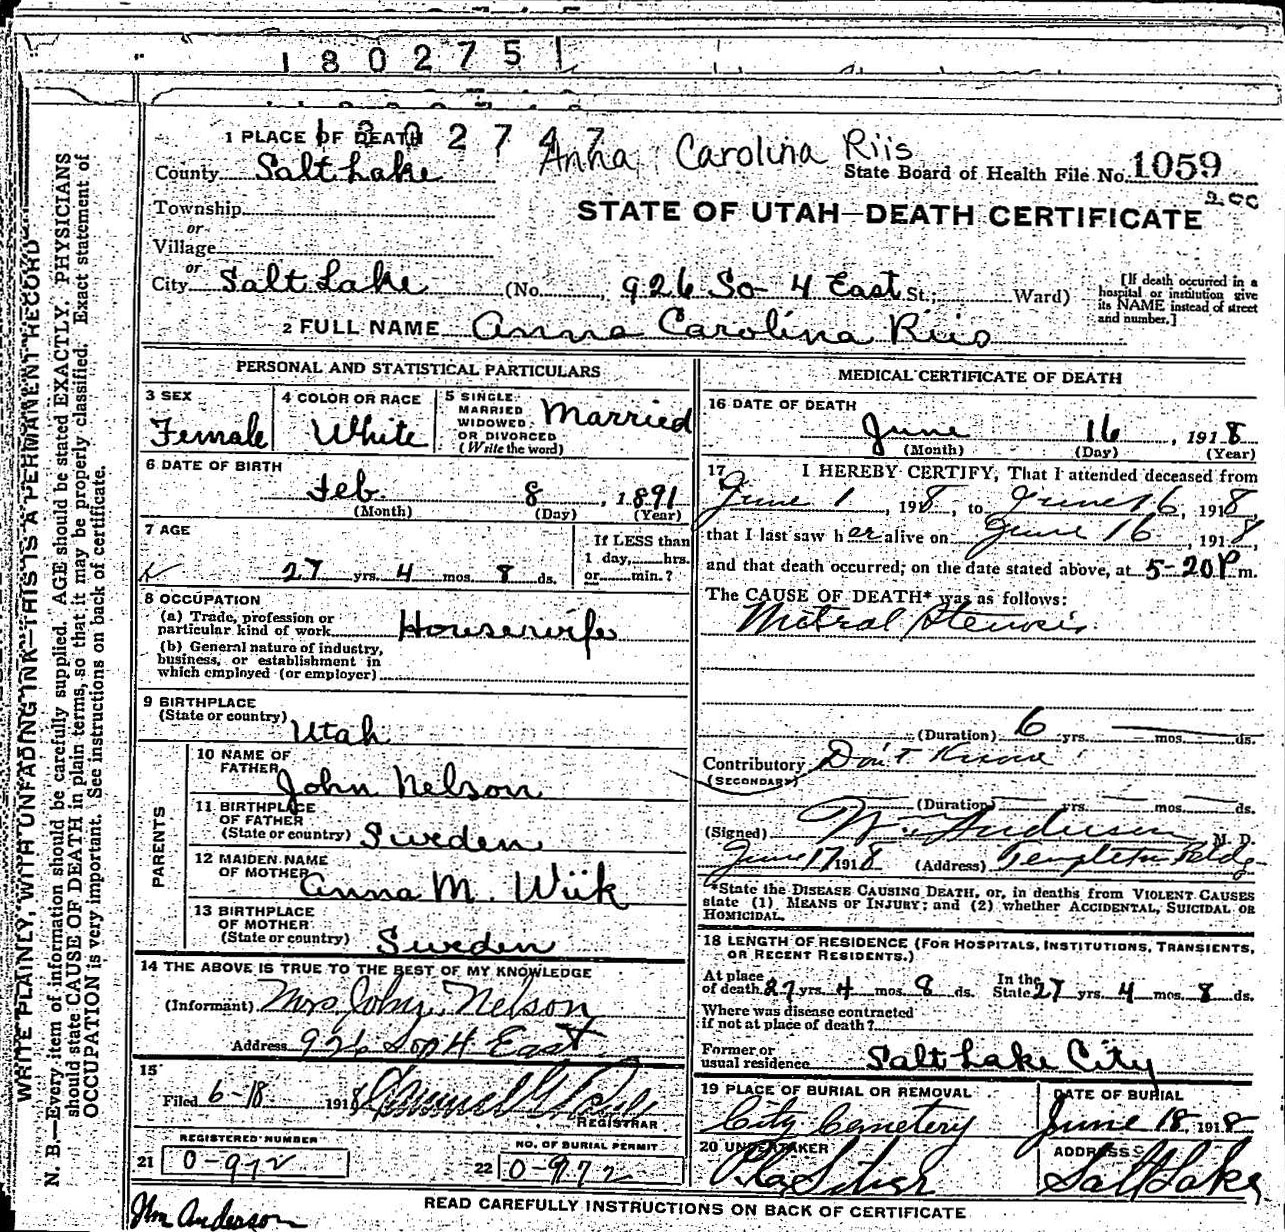 1802751
1802747
Anna Carolina Riis
1 PLACE OF DEATH
County Salt Lake
State Board of Health File No. 1059
Township
or
Village
or
STATE OF UTAH—DEATH CERTIFICATE
City Salt Lake (No. 926 So 4 East St.; Ward)
[If death occurred in a hospital or institution give its NAME instead of street and number.]
2 FULL NAME Anna Carolina Riis
PERSONAL AND STATISTICAL PARTICULARS
3 SEX
Female
4 COLOR OR RACE
White
5 SINGLE
MARRIED
WIDOWED
OR DIVORCED
(Write the word)
Married
6 DATE OF BIRTH
Feb. 8, 1891
(Month) (Day) (Year)
7 AGE
27 yrs. 4 mos. 8 ds.
If LESS than
1 day, hrs.
or min.?
8 OCCUPATION
(a) Trade, profession or
particular kind of work Housewife
(b) General nature of industry,
business, or establishment in
which employed (or employer)
9 BIRTHPLACE
(State or country)
Utah
PARENTS
10 NAME OF
FATHER
John Nelson
11 BIRTHPLACE
OF FATHER
(State or country) Sweden
12 MAIDEN NAME
OF MOTHER
Anna M. Wiik
13 BIRTHPLACE
OF MOTHER
(State or country) Sweden
14 THE ABOVE IS TRUE TO THE BEST OF MY KNOWLEDGE
(Informant) Mrs John Nelson
Address 926 So 4 East
15
Filed 6-18 1918
REGISTRAR
REGISTERED NUMBER
21 0-972
NO. OF BURIAL PERMIT
22 0-972
MEDICAL CERTIFICATE OF DEATH
16 DATE OF DEATH
June 16, 1918
(Month) (Day) (Year)
17 I HEREBY CERTIFY, That I attended deceased from
June 1, 1918, to June 16, 1918,
that I last saw her alive on June 16, 1918,
and that death occurred, on the date stated above, at 5-20 P m.
The CAUSE OF DEATH* was as follows:
Mitral Stenosis
(Duration) 6 yrs. mos. ds.
Contributory Don't Know
(SECONDARY)
(Duration) yrs. mos. ds.
(Signed) Anderson M. D.
June 17 1918 (Address) Templeton Bldg
*State the DISEASE CAUSING DEATH, or, in deaths from VIOLENT CAUSES
state (1) MEANS OF INJURY; and (2) whether ACCIDENTAL, SUICIDAL OR
HOMICIDAL.
18 LENGTH OF RESIDENCE (FOR HOSPITALS, INSTITUTIONS, TRANSIENTS,
OR RECENT RESIDENTS.)
At place
of death 27 yrs. 4 mos. 8 ds. In the State 27 yrs. 4 mos. 8 ds.
Where was disease contracted
if not at place of death?
Former or
usual residence Salt Lake City
19 PLACE OF BURIAL OR REMOVAL
City Cemetery
DATE OF BURIAL
June 18, 1918
20 UNDERTAKER
ADDRESS
Salt Lake
READ CAREFULLY INSTRUCTIONS ON BACK OF CERTIFICATE
Anderson
WRITE PLAINLY, WITH UNFADING INK—THIS IS A PERMANENT RECORD
N. B.—Every item of information should be carefully supplied. AGE should be stated EXACTLY. PHYSICIANS
should state CAUSE OF DEATH in plain terms, so that it may be properly classified. Exact statement of
OCCUPATION is very important. See instructions on back of certificate.